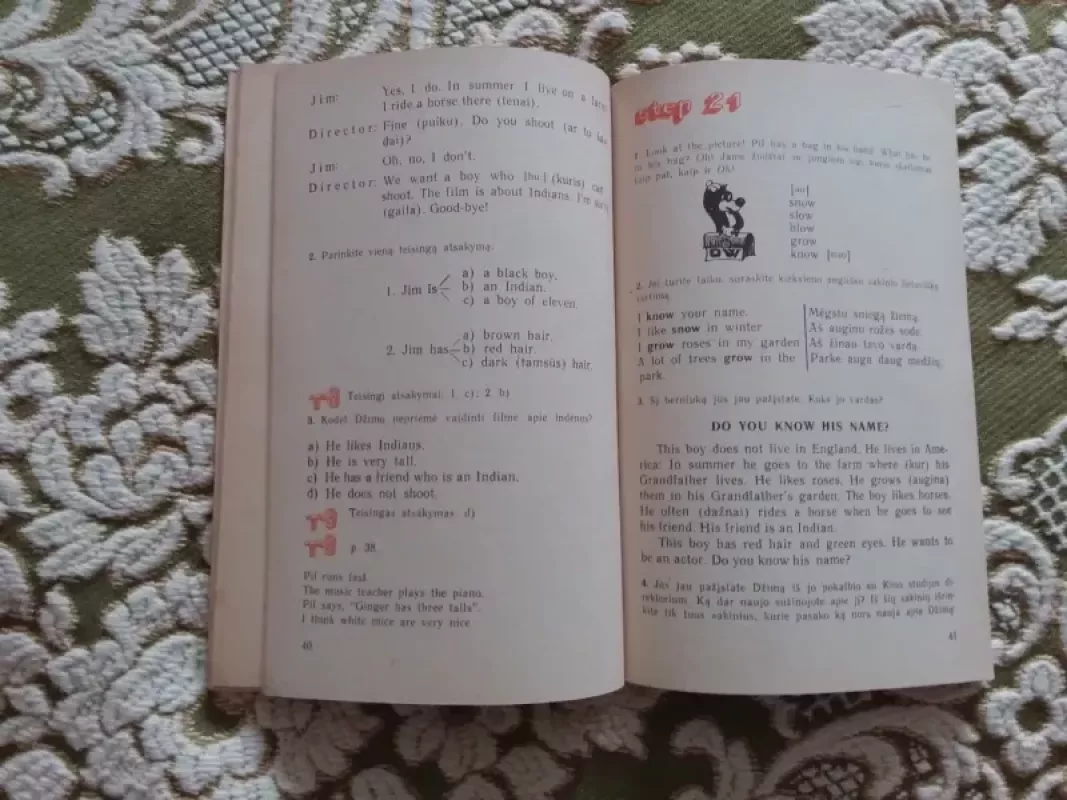 Jim: Yes, I do. In summer I live on a farm
I ride a horse there (tenai).
Director: Fine (puiku). Do you shoot (ar tu
dai)?
Jim: Oh, no, I don't.
Director: We want a boy who [hu:] (kuris) can
shoot. The film is about Indians. I'm sorry
(gaila). Good-bye!
2. Parinkite vieną teisingą atsakymą:
1. Jim is
a) a black boy.
b) an Indian.
c) a boy of eleven.
2. Jim has
a) brown hair.
b) red hair.
c) dark (tamsūs) hair.
Teisingi atsakymai: 1. c); 2 b)
3. Kodėl Džimo nepriėmė vaidinti filme apie indėnus?
a) He likes Indians.
b) He is very tall.
c) He has a friend who is an Indian.
d) He does not shoot.
Teisingas atsakymas d)
p 38.
Pif runs fast
The music teacher plays the piano.
Pif says, "Ginger has three tails".
I think white mice are very nice
40
step 21
1. Look at the picture! Pif has a bag in his hand. What has he
in his bag? Oh! Jame žodžiai su junginiu ow, kuris skaitomas
taip pat, kaip ir Oh!
OW
snow
slow
blow
grow
know
2. Jei turite laiko, suraskite kiekvieno angliško sakinio lietuvišką
vertimą.
I know your name.
I like snow in winter
I grow roses in my garden
A lot of trees grow in the
park.
Mėgstu sniegą žiemą.
Aš auginu rožes sode.
Aš žinau tavo vardą.
Parke auga daug medžių.
3. Šį berniuką jūs jau pažįstate. Koks jo vardas?
DO YOU KNOW HIS NAME?
This boy does not live in England. He lives in Ame-
rica. In summer he goes to the farm where (kur) his
Grandfather lives. He likes roses. He grows (augina)
them in his Grandfather's garden. The boy likes horses.
He often (dažnai) rides a horse when he goes to see
his friend. His friend is an Indian.
This boy has red hair and green eyes. He wants to
be an actor. Do you know his name?
4. Jūs jau pažįstate Džimą iš jo pokalbio su Kino studijos di-
rektoriumi. Ką dar naujo sužinojote apie jį? Iš šių sakinių išrin-
kite tik tuos sakinius, kurie pasako ką nors nauja apie Džimą
41